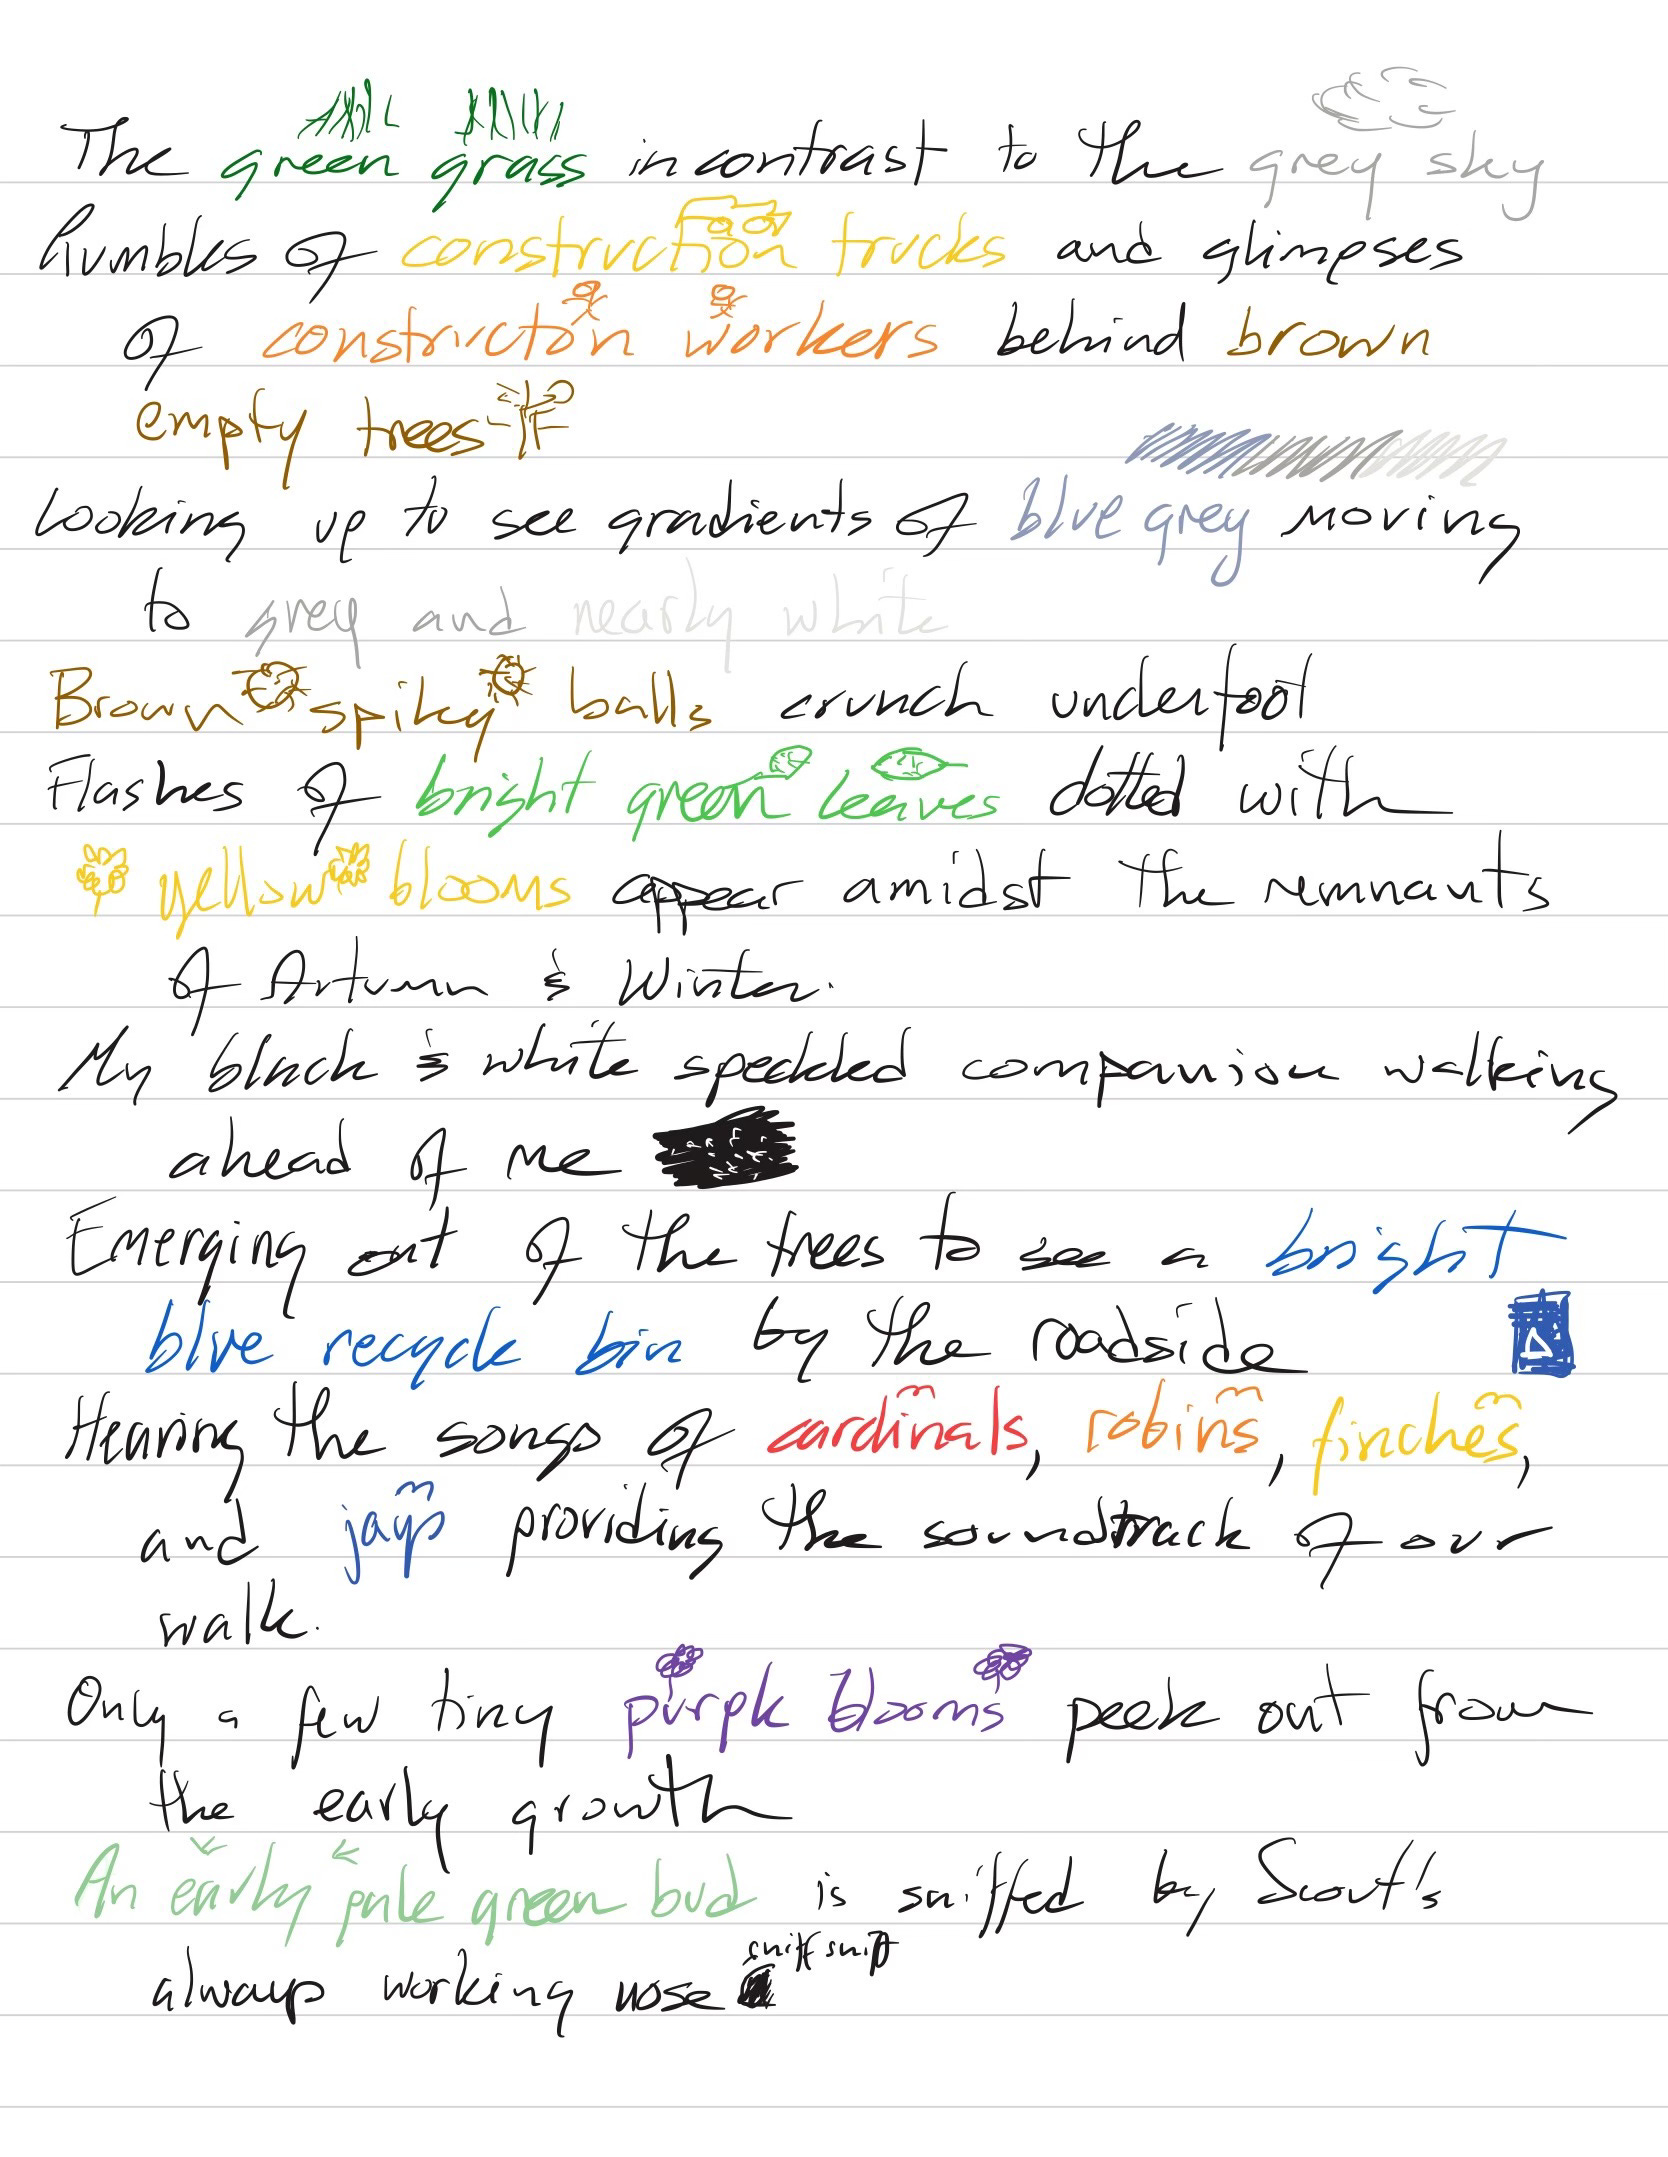 The green grass in contrast to the grey sky
Rumbles of construction trucks and glimpses
of construction workers behind brown
empty trees
Looking up to see gradients of blue grey moving
to grey and nearly white
Brown spiky balls crunch underfoot
Flashes of bright green leaves dotted with
yellow blooms appear amidst the remnants
of Autumn & Winter.
My black & white speckled companion walking
ahead of me
Emerging out of the trees to see a bright
blue recycle bin by the roadside
Hearing the songs of cardinals, robins, finches,
and jays providing the soundtrack of our
walk.
Only a few tiny purple blooms peek out from
the early growth
An early pale green bud is sniffed by Scout's
sniff sniff
always working nose